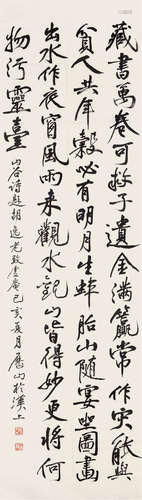 藏書萬卷可教子遺金滿籯常作灾能與
貧人共年穀必有明月生蚌胎山隨宴坐圖畫
出水作夜窗風雨來觀水觀山皆得妙更將何
物污靈臺
山谷诗題胡逸老致虚庵己亥夏月山於漢上